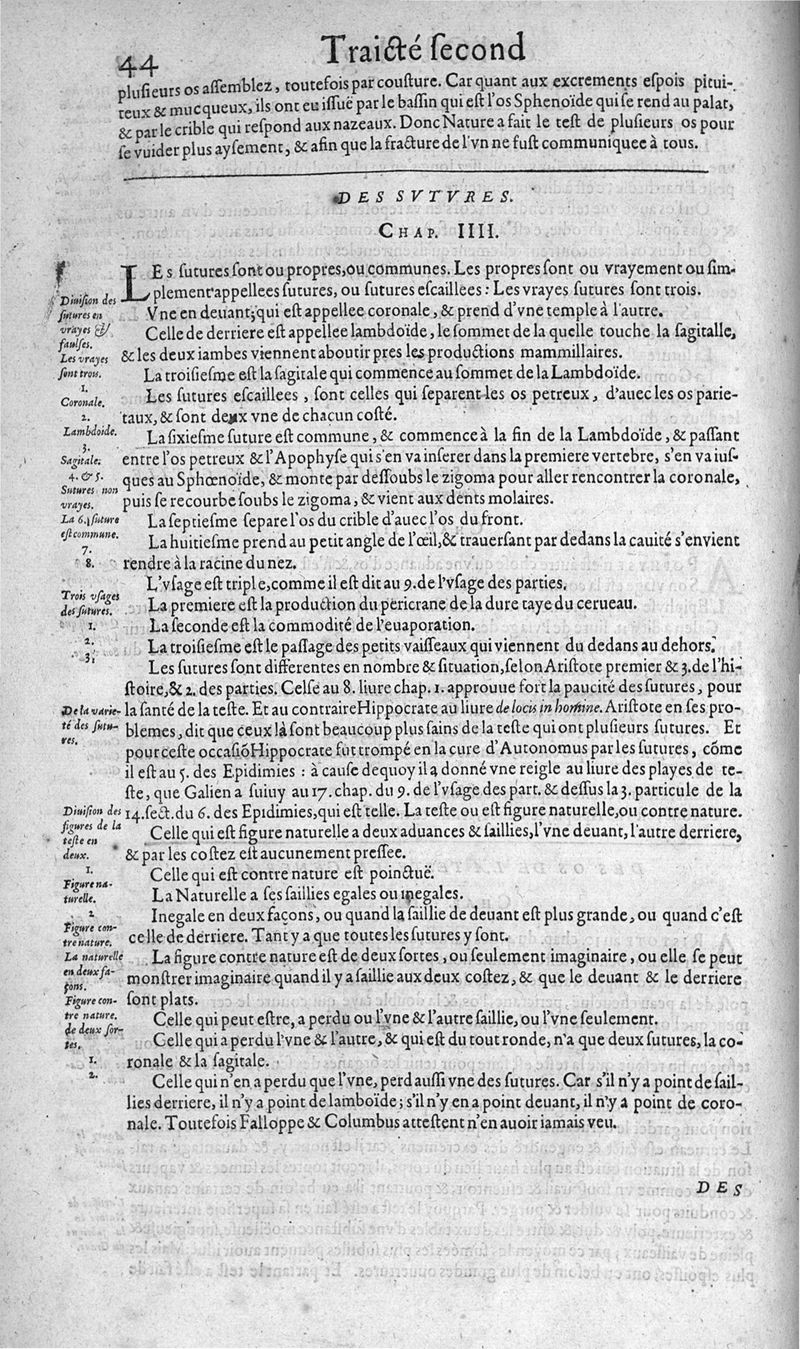 44
Traicté ſecond
pluſieurs os aſſemblez, toutefois par couſture. Car quant aux excrements eſpois pitui-
teux & mucqueux, ils ont eu iſſuë par le baſſin qui eſt l'os Sphenoïde qui ſe rend au palat,
& par le crible qui reſpond aux nazeaux. Donc Nature a fait le teſt de pluſieurs os pour
ſe vuider plus ayſement, & afin que la fracture de l'vn ne fuſt communiquee à tous.
DES SVTVRES.
CHAP. IIII.
LEs ſutures ſont ou propres, ou communes. Les propres ſont ou vrayement ou ſim-
plement appellees ſutures, ou ſutures eſcaillees : Les vrayes ſutures ſont trois.
Vne en deuant, qui eſt appellee coronale, & prend d'vne temple à l'autre.
Celle de derriere eſt appellee lambdoïde, le ſommet de la quelle touche la ſagitalle,
& les deux iambes viennent aboutir pres les productions mammillaires.
La troiſieſme eſt la ſagitale qui commence au ſommet de la Lambdoïde.
Les ſutures eſcaillees, ſont celles qui ſeparent les os petreux, d'auec les os parie-
taux, & ſont deux vne de chacun coſté.
La ſixieſme ſuture eſt commune, & commence à la fin de la Lambdoïde, & paſſant
entre l'os petreux & l'Apophyſe qui s'en va inſerer dans la premiere vertebre, s'en va iuſ-
ques au Sphœnoïde, & monte par deſſoubs le zigoma pour aller rencontrer la coronale,
puis ſe recourbe ſoubs le zigoma, & vient aux dents molaires.
La ſeptieſme ſepare l'os du crible d'auec l'os du front.
La huitieſme prend au petit angle de l'œil, & trauerſant par dedans la cauité s'en vient
rendre à la racine du nez.
L'vſage eſt triple, comme il eſt dit au 9. de l'vſage des parties.
La premiere eſt la production du pericrane de la dure taye du cerueau.
La ſeconde eſt la commodité de l'euaporation.
La troiſieſme eſt le paſſage des petits vaiſſeaux qui viennent du dedans au dehors.
Les ſutures ſont differentes en nombre & ſituation, ſelon Ariſtote premier & 3. de l'hi-
ſtoire, & 2. des parties. Celſe au 8. liure chap. 1. approuue fort la paucité des ſutures, pour
la ſanté de la teſte. Et au contraire Hippocrate au liure de locis in homine. Ariſtote en ſes pro-
blemes, dit que ceux là ſont beaucoup plus ſains de la teſte qui ont pluſieurs ſutures. Et
pour ceſte occaſiō Hippocrate fut trompé en la cure d'Autonomus par les ſutures, cōme
il eſt au 5. des Epidimies : à cauſe dequoy il a donné vne reigle au liure des playes de te-
ſte, que Galien a ſuiuy au 17. chap. du 9. de l'vſage des part. & deſſus la 3. particule de la
14. ſect. du 6. des Epidimies, qui eſt telle. La teſte ou eſt figure naturelle, ou contre nature.
Celle qui eſt figure naturelle a deux aduances & ſaillies, l'vne deuant, l'autre derriere,
& par les coſtez eſt aucunement preſſee.
Celle qui eſt contre nature eſt poinctuë.
La Naturelle a ſes ſaillies egales ou inegales.
Inegale en deux façons, ou quand la ſaillie de deuant eſt plus grande, ou quand c'eſt
celle de derriere. Tant y a que toutes les ſutures y ſont.
La figure contre nature eſt de deux ſortes, ou ſeulement imaginaire, ou elle ſe peut
monſtrer imaginaire quand il y a ſaillie aux deux coſtez, & que le deuant & le derriere
ſont plats.
Celle qui peut eſtre, a perdu ou l'vne & l'autre ſaillie, ou l'vne ſeulement.
Celle qui a perdu l'vne & l'autre, & qui eſt du tout ronde, n'a que deux ſutures, la co-
ronale & la ſagitale.
Celle qui n'en a perdu que l'vne, perd auſſi vne des ſutures. Car s'il n'y a point de ſail-
lies derriere, il n'y a point de lamboïde; s'il n'y en a point deuant, il n'y a point de coro-
nale. Toutefois Falloppe & Columbus atteſtent n'en auoir iamais veu.
DES
Diuiſion des
ſutures en
vrayes &
fauſſes.
Les vrayes
ſont trois.
1.
Coronale.
2.
Lambdoide.
3.
Sagitale.
4. & 5.
Sutures non
vrayes.
La 6. ſuture
eſt commune.
7.
8.
Trois vſages
des ſutures.
1.
2.
3.
De la varie-
té des ſutu-
res.
Diuiſion des
figures de la
teſte en
deux.
1.
Figure na-
turelle.
2
Figure con-
tre nature.
La naturelle
en deux fa-
çons.
Figure con-
tre nature.
de deux ſor-
tes.
1.
2.